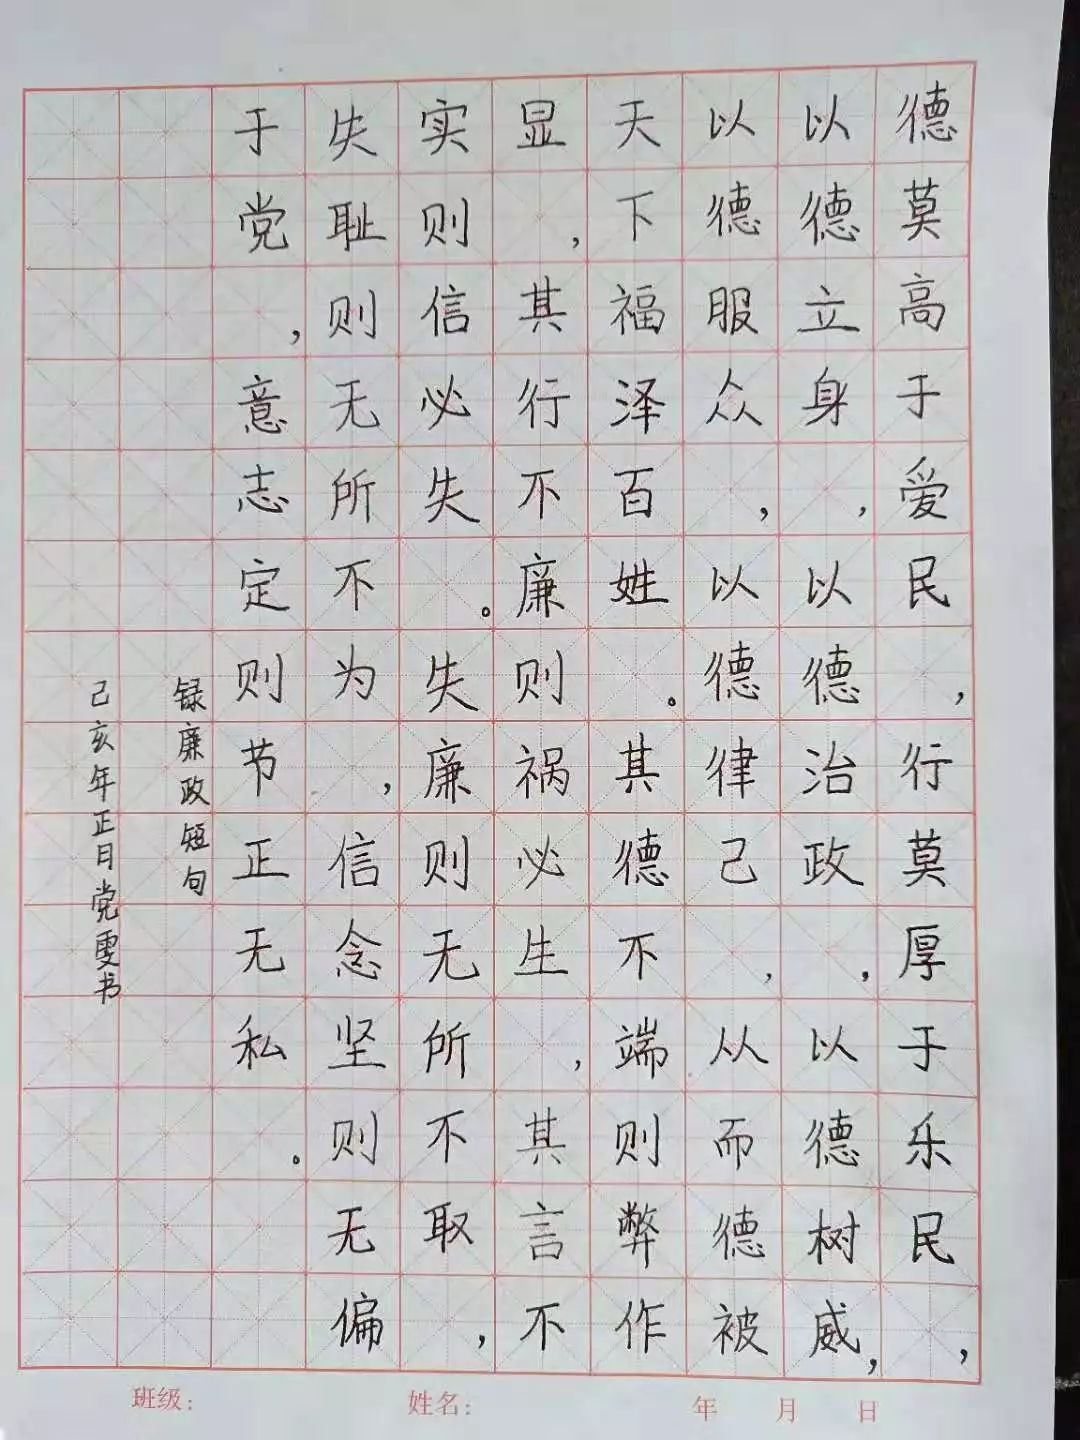 德莫高于爱民，行莫厚于乐民，
以德立身，以德治政，以德树威，
以德服众，以德律己，从而德被
天下福泽百姓。其德不端则弊作
显，其行不廉则祸必生，其言不
实则信必失。失廉则无所不取，
失耻则无所不为，信念坚则无偏
于党，意志定则节正无私。
录廉政短句
己亥年正日党雯书
班级：
姓名：
年 月 日